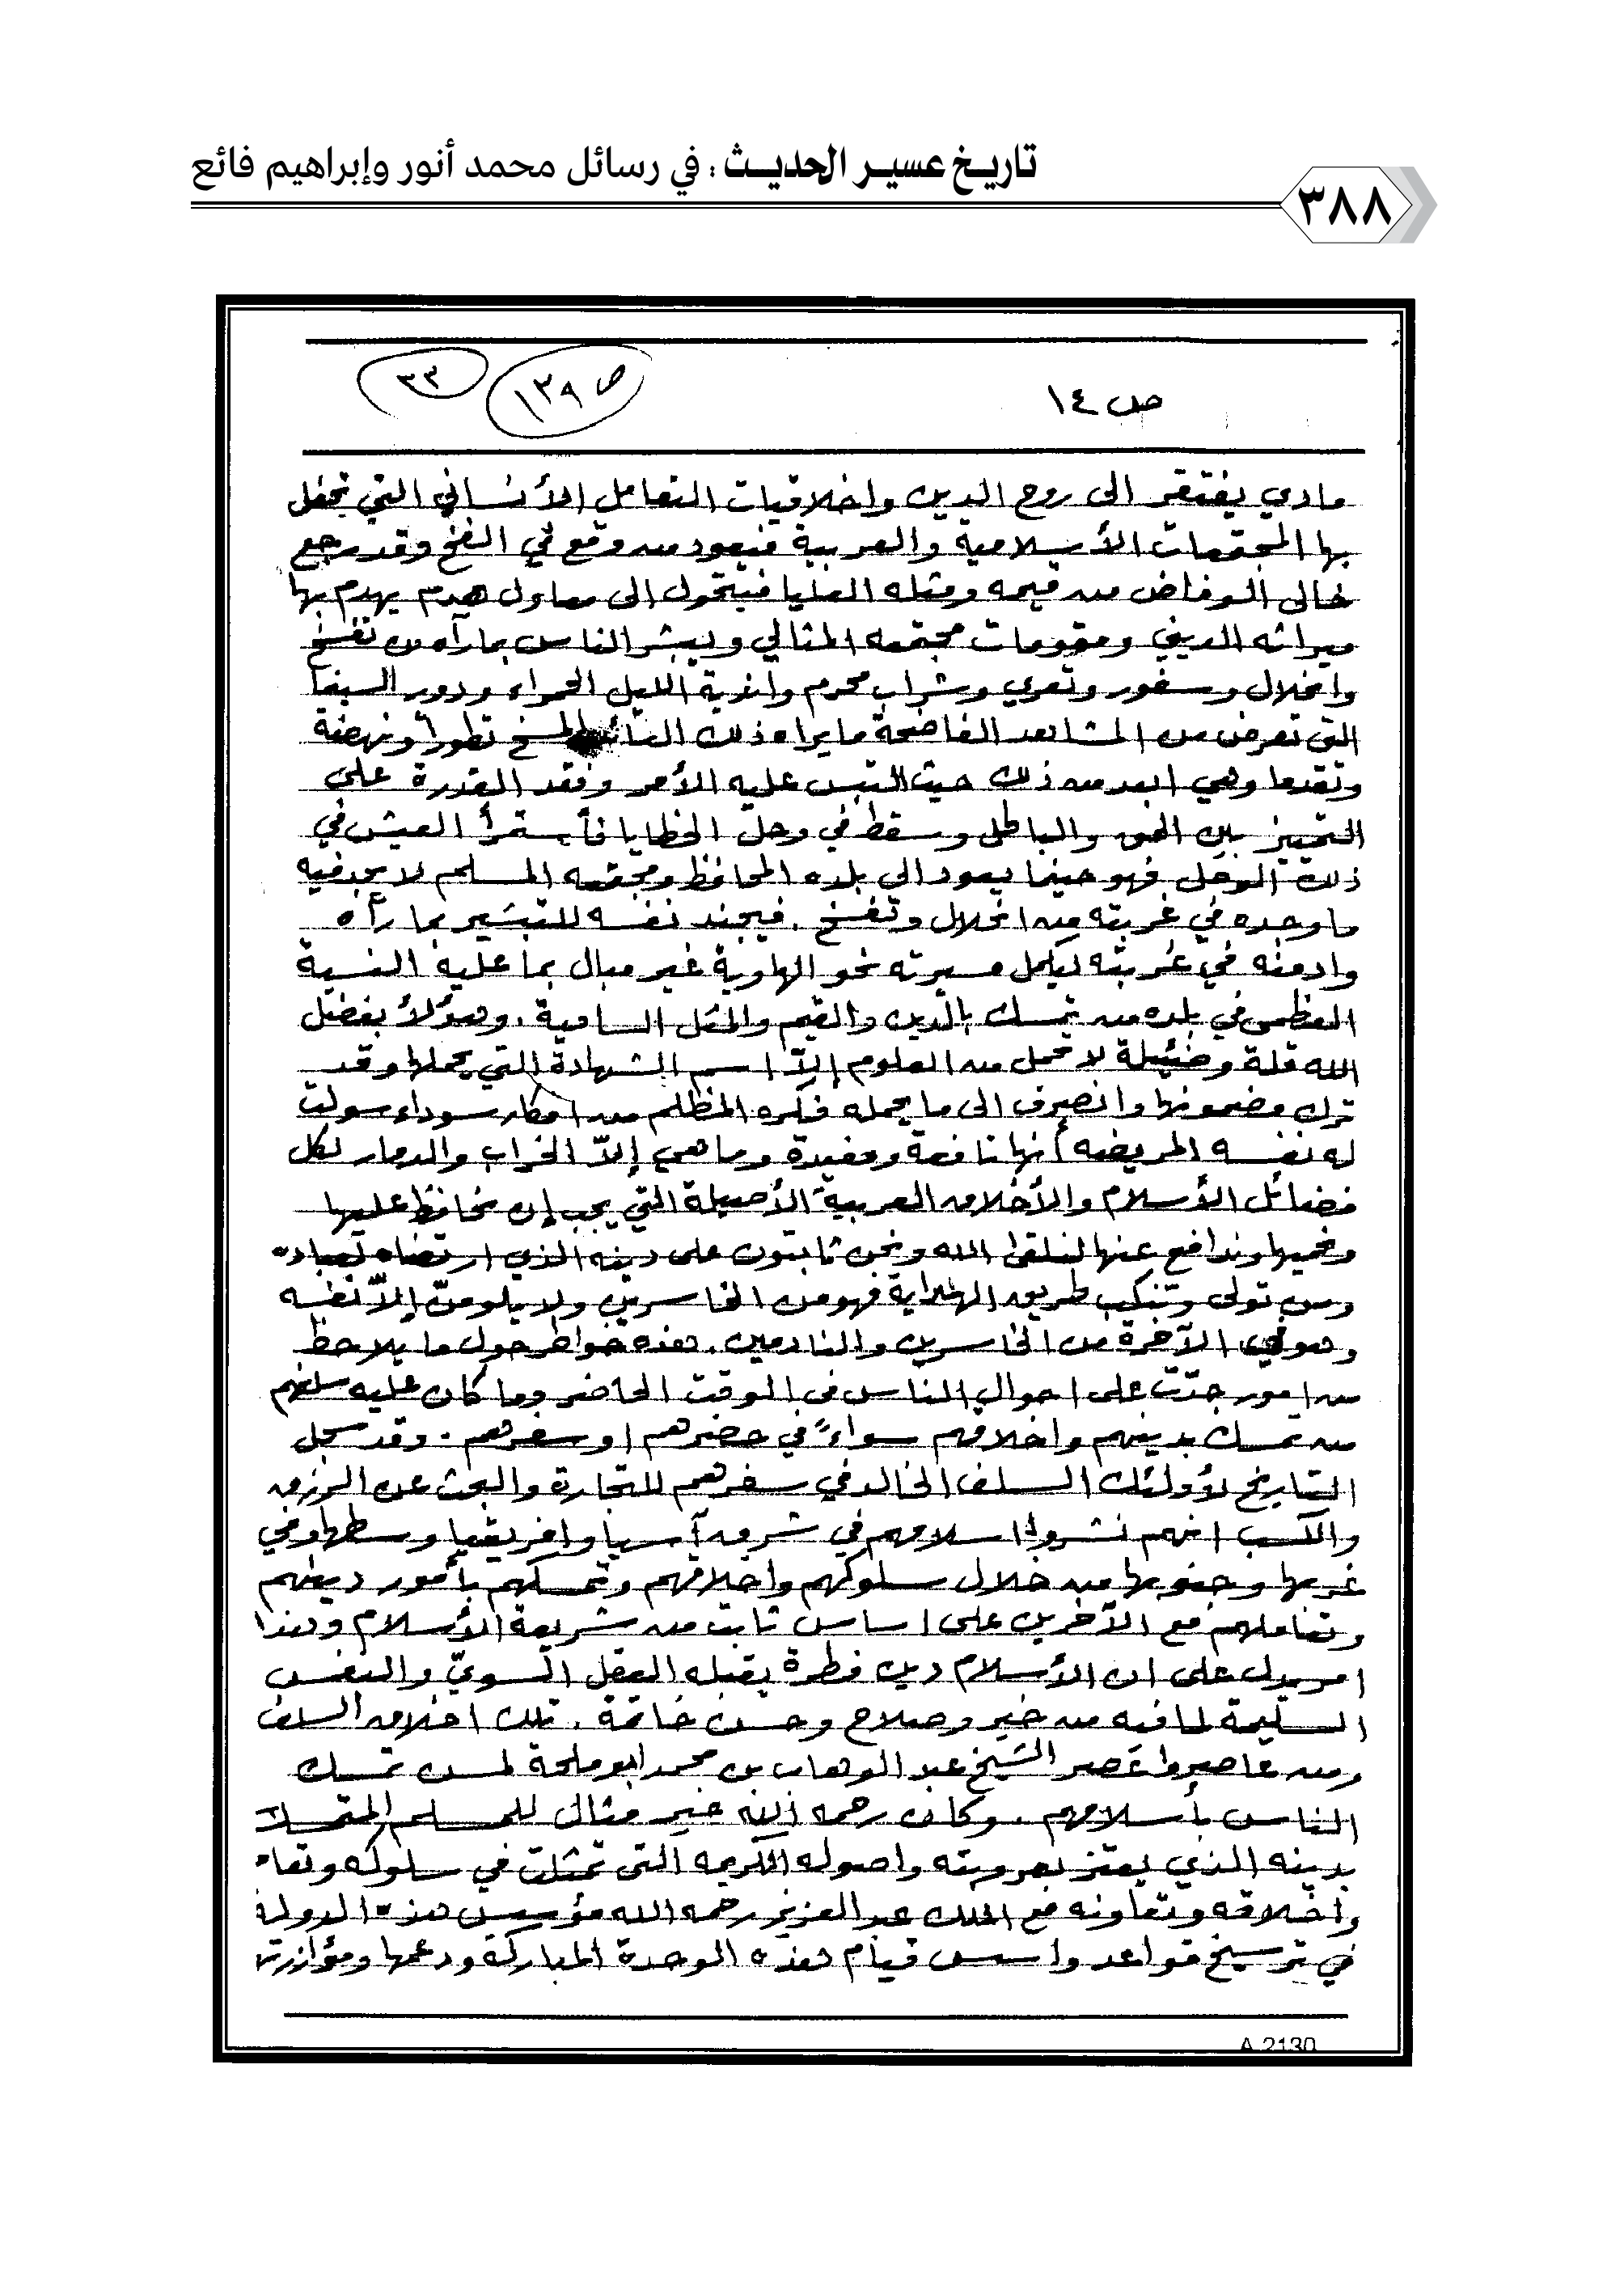 تاريخ عسير الحديث : في رسائل محمد أنور وإبراهيم فائع
٣٨٨
ص ١٤
ص ١٣٩
٣٣
مادي يفتقر الى روح الدين واخلاقيات التعامل الأنساني التي تحفل
بها المجتمعات الأسلامية والعربية فيعود من وقع في الفخ وقد رجع
خالى الوفاض من قيمه ومثله العليا فيتحول الى معاول هدم يهدم بها
ميراثه الديني ومقومات مجتمعه المثالي ويبشر الناس بما رآه من تفسخ
وانحلال وسفور وتعري وشراب محرم واندية الليل الحمراء ودور السينما
التي تعرض من المشاهد الفاضحة ما يراه ذلك المسخ تطوراً ونهضة
وتقدما وهي ابعد من ذلك حيث التبس عليه الأمر وفقد القدرة على
التمييز بين الحق والباطل وسقط في وحل الخطايا فأستمرأ العيش في
ذلك الوحل فهو حينما يعود الى بلده المحافظ ومجتمعه المسلم لا يجد فيه
ما وجده في غربته من انحلال وتفسخ . فيجند نفسه للتبشير بما رآه
وادمنه في غربته ليكمل مسيرته نحو الهاوية غير مبال بما عليه النسبة
العظمى في بلده من تمسك بالدين والقيم والمثل السامية . وهؤلأ بفضل
الله قلة وضئيلة لا تحمل من العلوم إلاّ اسم الشهادة التي يحملها وقد
ترك مضمونها وانصرف الى ما يحمله فكره المظلم من افكار سوداء سولت
له نفسه المريضه أنها نافعة ومفيدة وما هي إلاّ الخراب والدمار لكل
فضائل الأسلام والأخلاق العربية الأصيلة التي يجب إن نحافظ عليها
ونحميها وندافع عنها لنلقى الله ونحن ثابتون على دينه الذي ارتضاه لعباده
ومن تولى وتنكب طريق الهداية فهو من الخاسرين ولا يلومنّ إلاّ نفسه
وهو في الآخرة من الخاسرين والنادمين . هذه خواطر حول ما يلاحظ
من امور جدّت على احوال الناس في الوقت الحاضر وما كان عليه سلفهم
من تمسك بدينهم واخلاقهم سواءً في حضرهم او سفرهم . وقد سجل
التاريخ لأولئك السلف الخالد في سفرهم للتجارة والبحث عن الرزق
والكسب انهم نشروا اسلامهم في شرق آسيا وافريقيا وسطها وفي
غربها وجنوبها من خلال سلوكهم واخلاقهم وتمسكهم بأمور دينهم
وتعاملهم مع الآخرين على اساس ثابت من شريعة الأسلام وهذا
امر يدل على ان الأسلام دين فطرة يقبله العقل السويّ والنفس
السليمة لما فيه من خير وصلاح وحسن خاتمة . تلك اخلاق السلف
ومن عاصروا عصر الشيخ عبد الوهاب بن محمد ابو ملحة لمس تمسك
الناس بأسلامهم . وكان رحمه الله خير مثال للمسلم المتمسك
بدينه الذي يعتز بعروبته واصوله الكريمه التي تمثلت في سلوكه
واخلاقه وتعاونه مع الملك عبد العزيز رحمه الله مؤسس هذه الدولة
في ترسيخ قواعد واسس قيام هذه الوحدة المباركة ودعمها ومؤازرتها
A 2130